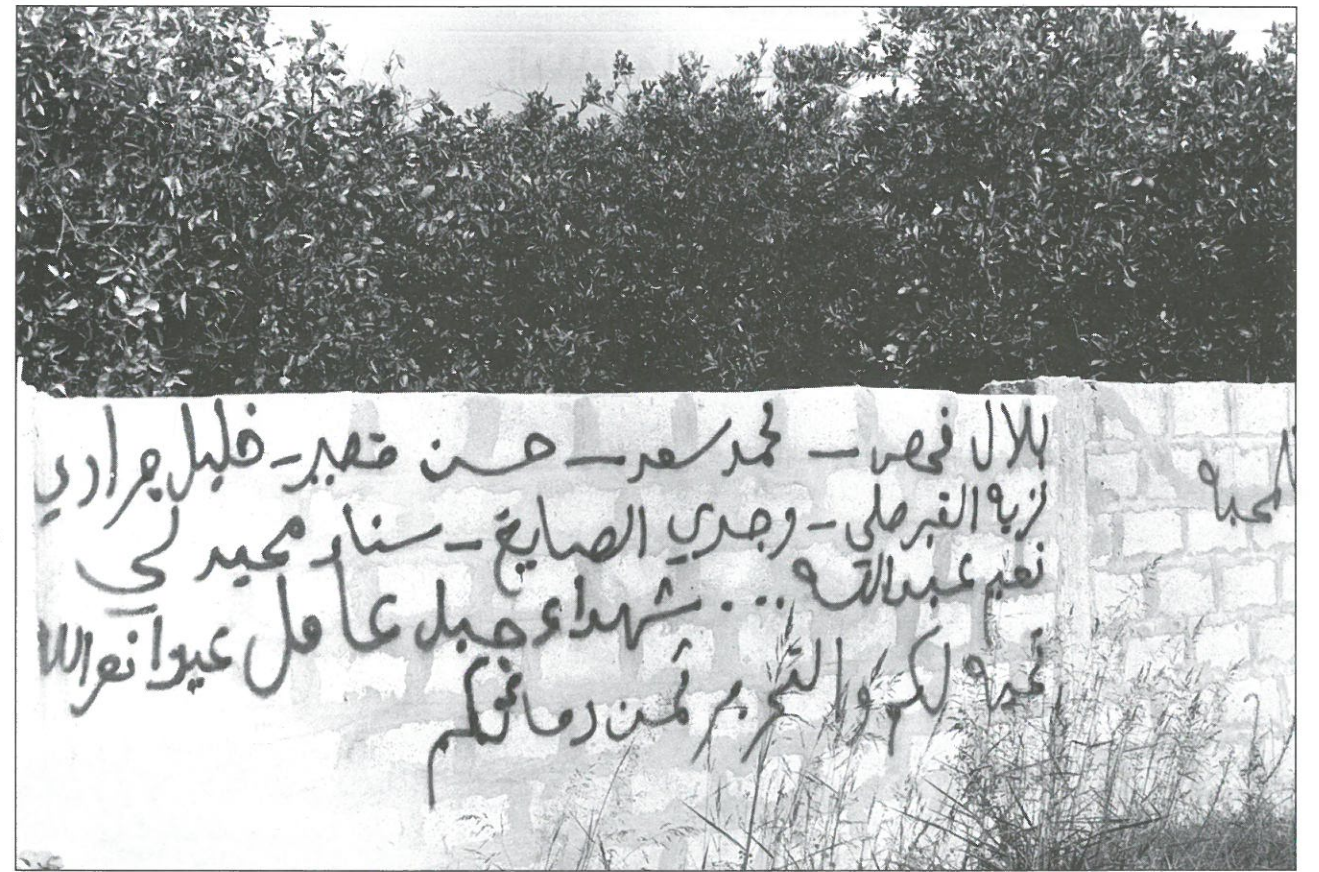 بلال فحص – محمد سعد – حسن قصير – خليل جرادي
نزيه القبرصلي – وجدي الصايغ – سناء محيدلي
عبدالله ... شهداء جبل عامل
تحيه لكم والتحرير ثمن دمائكم
المحبه